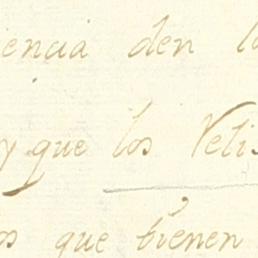 iencia den l
y que los Velis
os que tienen